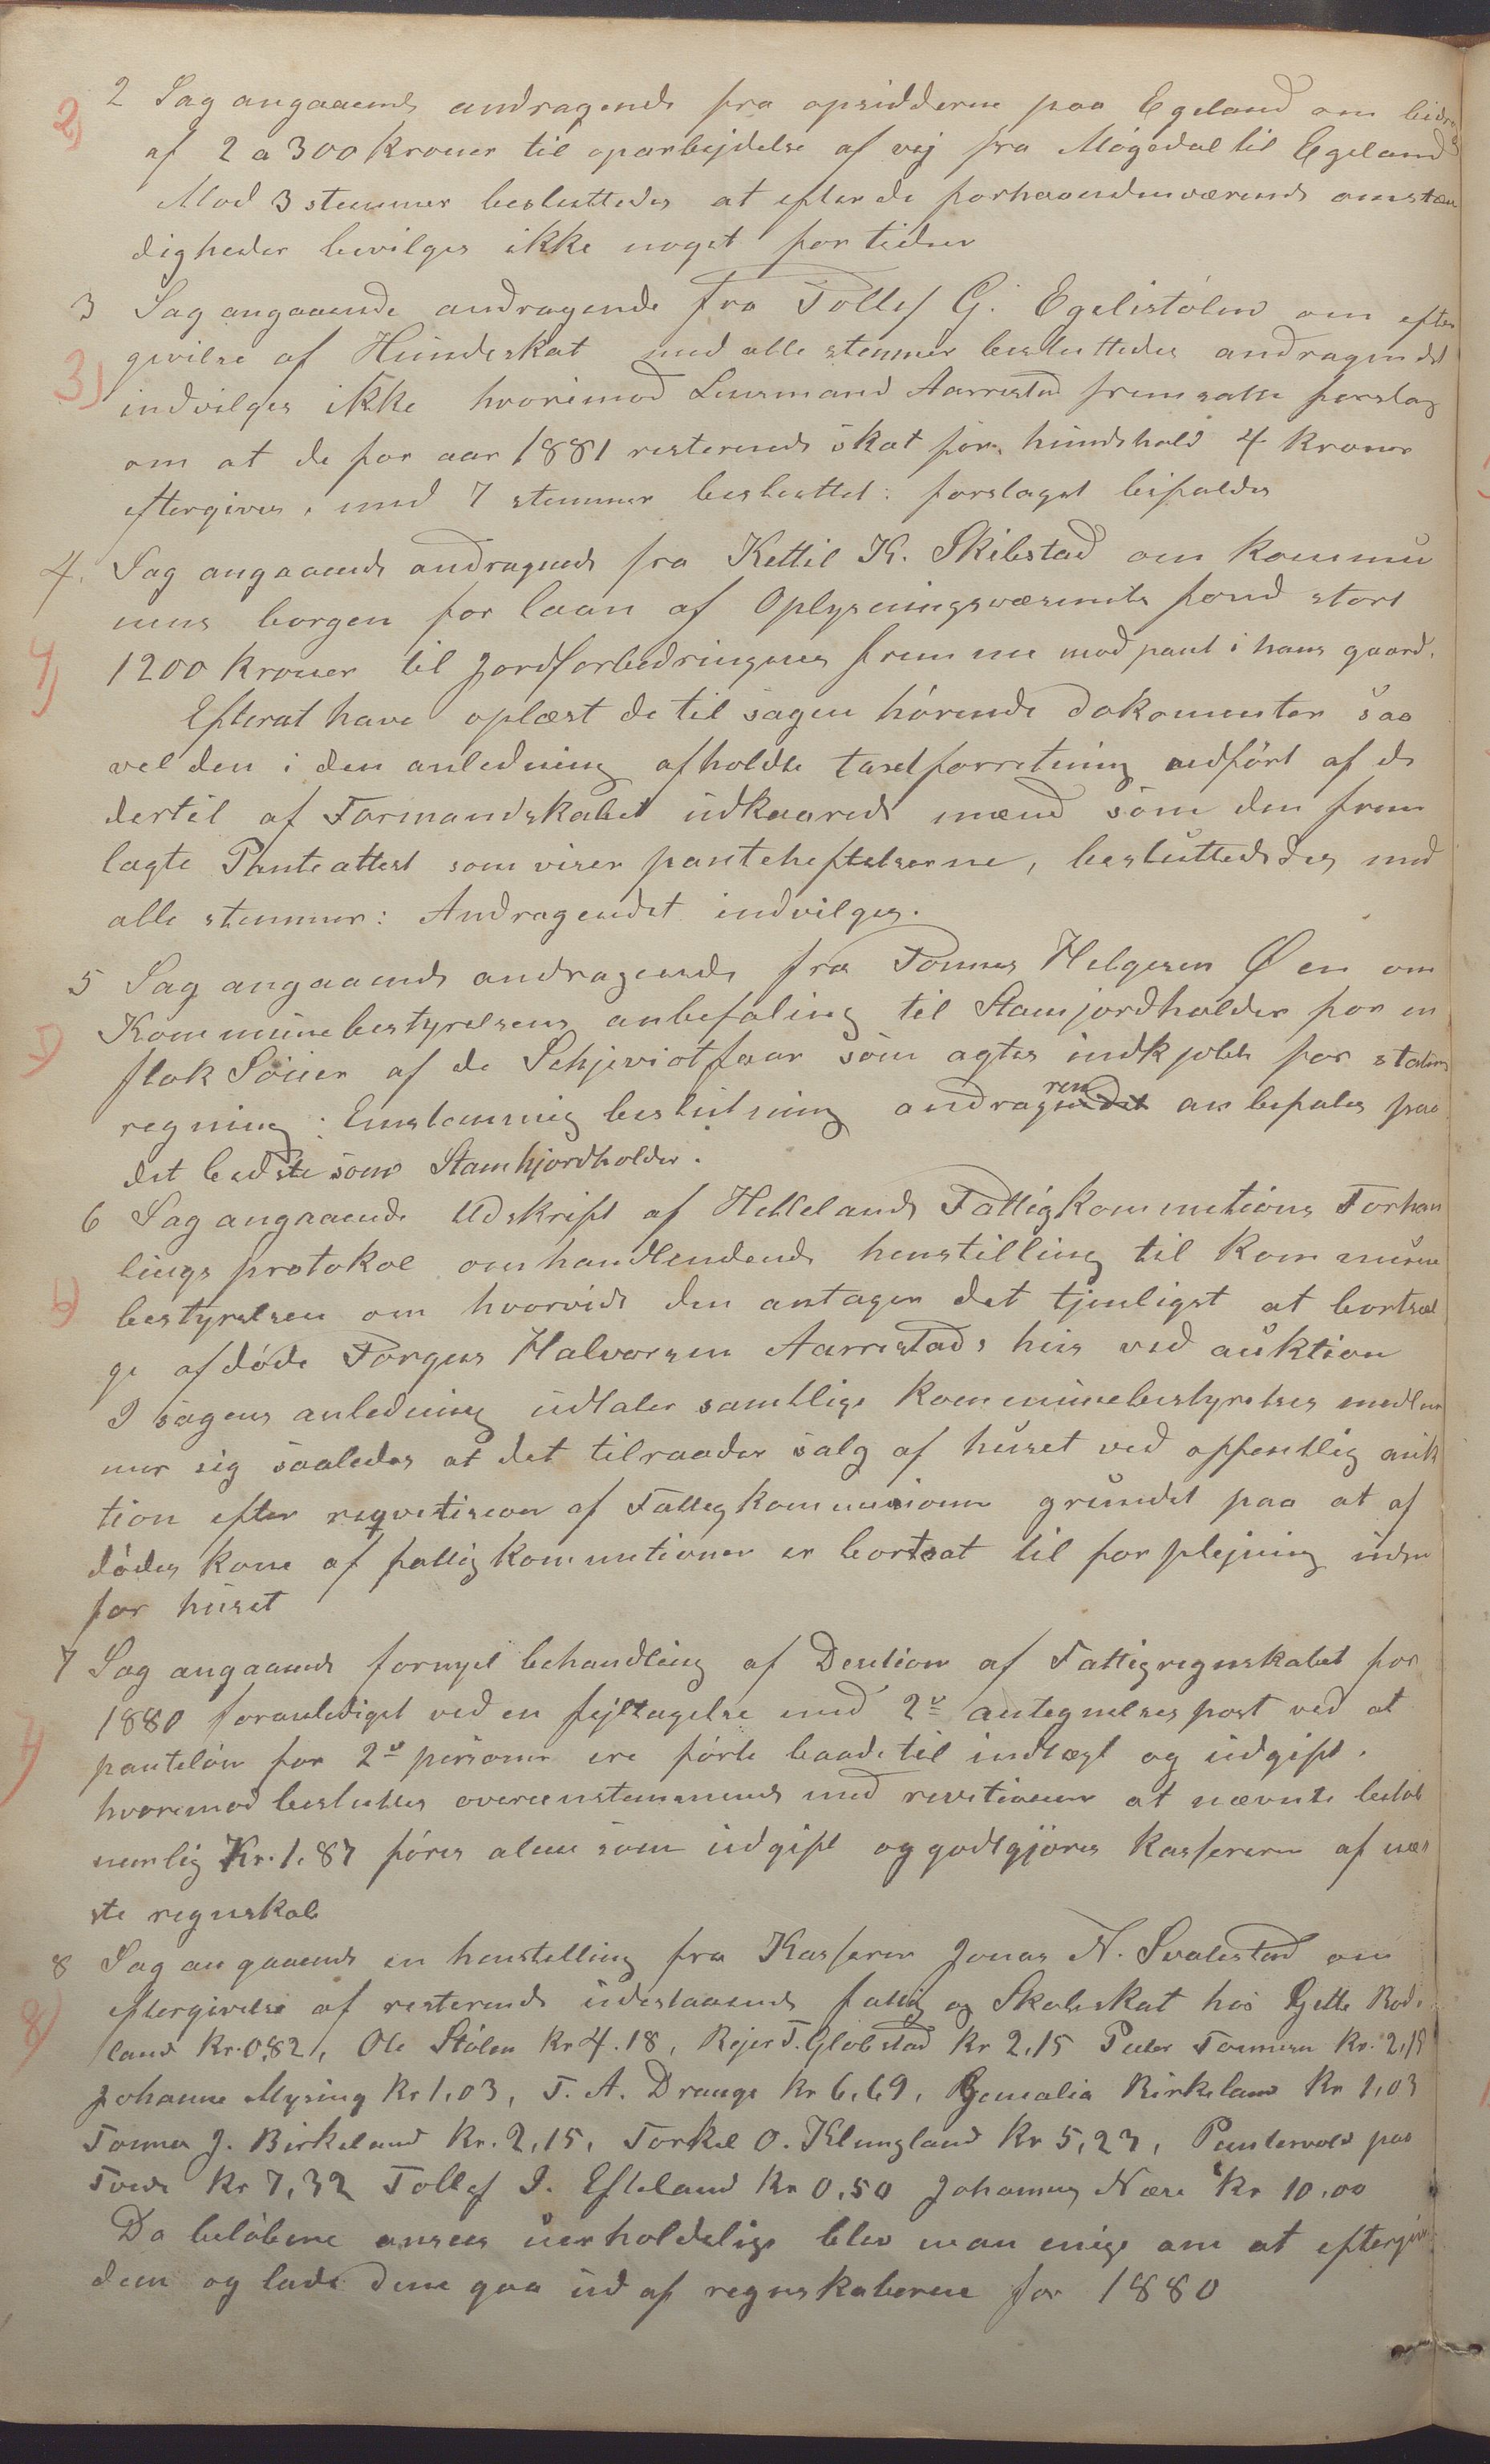 2 Sag angaaende andragende fra opsidderne paa Egeland om bidrag
2) af 2 a 300 kroner til oparbejdelse af vej fra Mögedal til Egeland
Mod 3 stemmer besluttedes at efter de forhaandenværende omstæn
digheder bevilges ikke noget for tiden
3 Sag angaaende andragende fra Tollef G. Egelistölen om efter
3) givelse af Hundeskat med alle stemmer besluttedes andragendet
indvilges ikke hvorimod Lensmand Aarrestad fremsatte forslag
om at de for aar 1881 resterende skat for hundehold 4 kroner
eftergives, med 7 stemmer besluttet: forslaget bifaldes
4. Sag angaaende andragende fra Kettil K. Skibstad om kommu
nens borgen for laan af Oplysningsvæsenets fond stort
4) 1200 kroner til Jordforbedringens fremme mod pant i hans gaard.
Efterat have oplæst de til sagen hörende dokumenter saa
vel den i den anledning afholdte taxtforretning udfört af de
dertil af Formandskabet udkaarede mænd som den frem
lagte Panteattest som viser panteheftelserne, besluttededes med
alle stemmer: Andragendet indvilges.
5 Sag angaaende andragende fra Tönnes Helgesen Øen om
5) Kommunebestyrelsens anbefaling til Stamjordholder for en
flok Söuer af de Schjeviotfaar som agtes indkjöbte for statens
regning: Enstemmig beslutning andrageren anbefales paa
det bedste som Stamhjordholder.
6 Sag angaaende Udskrift af Hetlelands Fattigkommitions Forhan
lings protokol omhandlendende henstilling til kommune
6) bestyrelsen om hvorvidt den antager det tjenligst at bortsæl
ge afdöde Torgers Halvorsen Aarrestads hus ved auktion
I sagens anledning udtaler samtlige kommunebestyrelses medlem
mer sig saaledes at det tilraader salg af huset ved offentlig auk
tion efter reqvetision af Fattigkommisionen grundet paa at af
dödes kone af fattigkommitionen er bortsat til forplejning uden
for huset
7 Sag angaaende fornyet behandling af Desition af Fattigregnskabet for
7) 1880 foranlediget ved en fejltagelse med 2den antegnelsespost ved at
pantelön for 2de personer ere förte baade til indtægt og udgift.
hvoremod besluttes overensstemmende med revitionen at nævnte belöb
nemlig Kr. 1.87 föres alene som udgift og godtgjöres kassereren af næ
ste regnskab
8 Sag angaaende en henstilling fra Kasserer Jonas N. Svalestad om
8) eftergivelse af resterende udestaaende fattig og Skoleskat hos Gitle Rode
land Kr. 0,82, Ole Stölen Kr 4.18, Rejer T. Globstad Kr 2,15 Peder Tönnesen Kr. 2,15
Johanne Mysing Kr 1,03, T. A. Drange Kr 6,69, Gemalia Birkeland Kr 1,03
Tönnes J. Birkeland Kr. 2,15, Torkel O. Klungland Kr 5,23, Pundervold paa
Tvede Kr 7,32 Tollef I. Efteland Kr 0,50 Johannes Næse Kr 10.00
Da belöbene ansees uerholdelige blev man enige om at eftergive
dem og lade dem gaa ud af regnskaberne for 1880